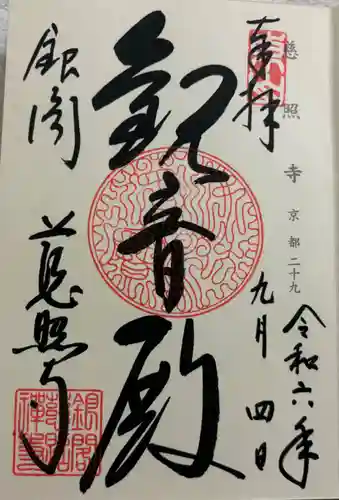 慈照寺 京都二十九
奉拝
令和六年
九月四日
觀音殿
銀閣
慈照寺